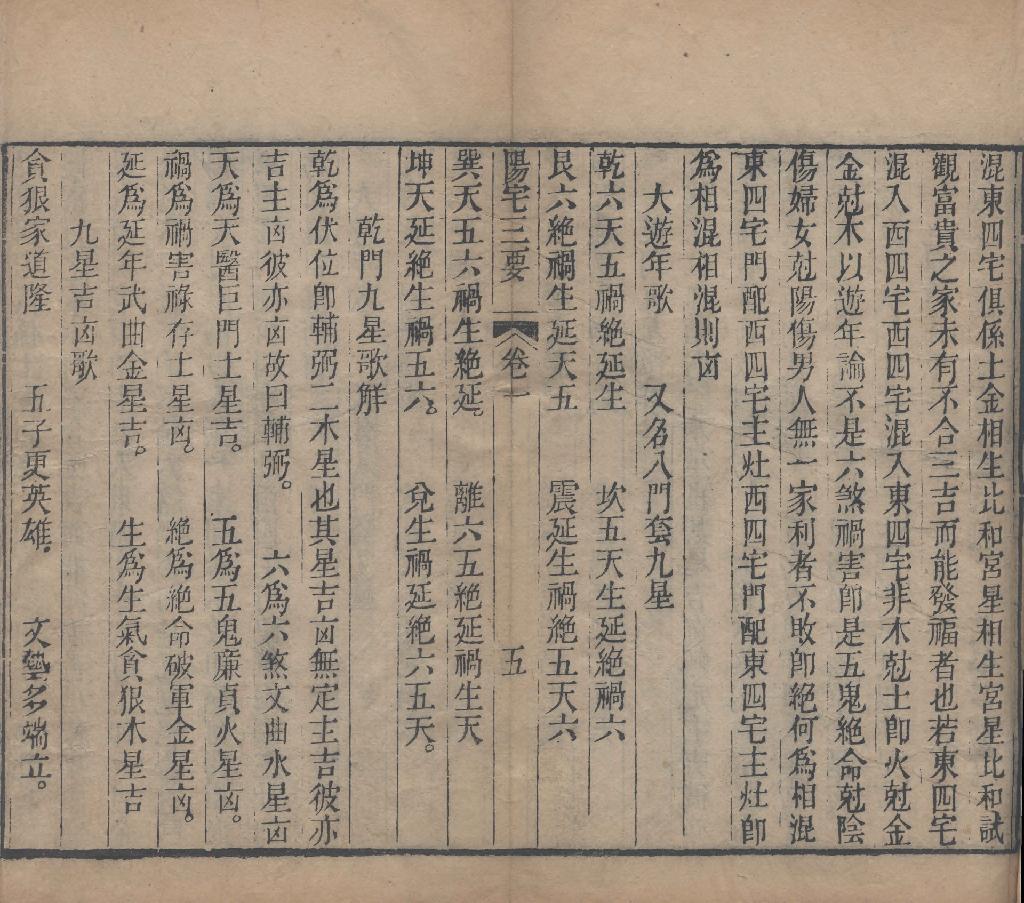 混東四宅俱係土金相生比和宮星相生宮星比和試
觀富貴之家未有不合三吉而能發福者也若東四宅
混入西四宅西四宅混入東四宅非木尅土卽火尅金
金尅木以遊年論不是六煞禍害卽是五鬼絶命尅陰
傷婦女尅陽傷男人無一家利者不敗卽絶何爲相混
東四宅門配西四宅主灶西四宅門配東四宅主灶卽
爲相混相混則凶
大遊年歌　又名八門套九星
乾六天五禍絶延生　坎五天生延絶禍六
艮六絶禍生延天五　震延生禍絶五天六
陽宅三要　卷一　五
巽天五六禍生絶延。　離六五絶延禍生天
坤天延絶生禍五六。　兌生禍延絶六五天。
乾門九星歌觧
乾爲伏位卽輔弼二木星也其星吉凶無定主吉彼亦
吉主凶彼亦凶故曰輔弼。　六爲六煞文曲水星凶
天爲天醫巨門土星吉。　五爲五鬼廉貞火星凶。
禍爲禍害祿存土星凶。　絶爲絶命破軍金星凶。
延爲延年武曲金星吉。　生爲生氣貪狠木星吉
九星吉凶歌
貪狠家道隆　五子更英雄．　文藝多端立。